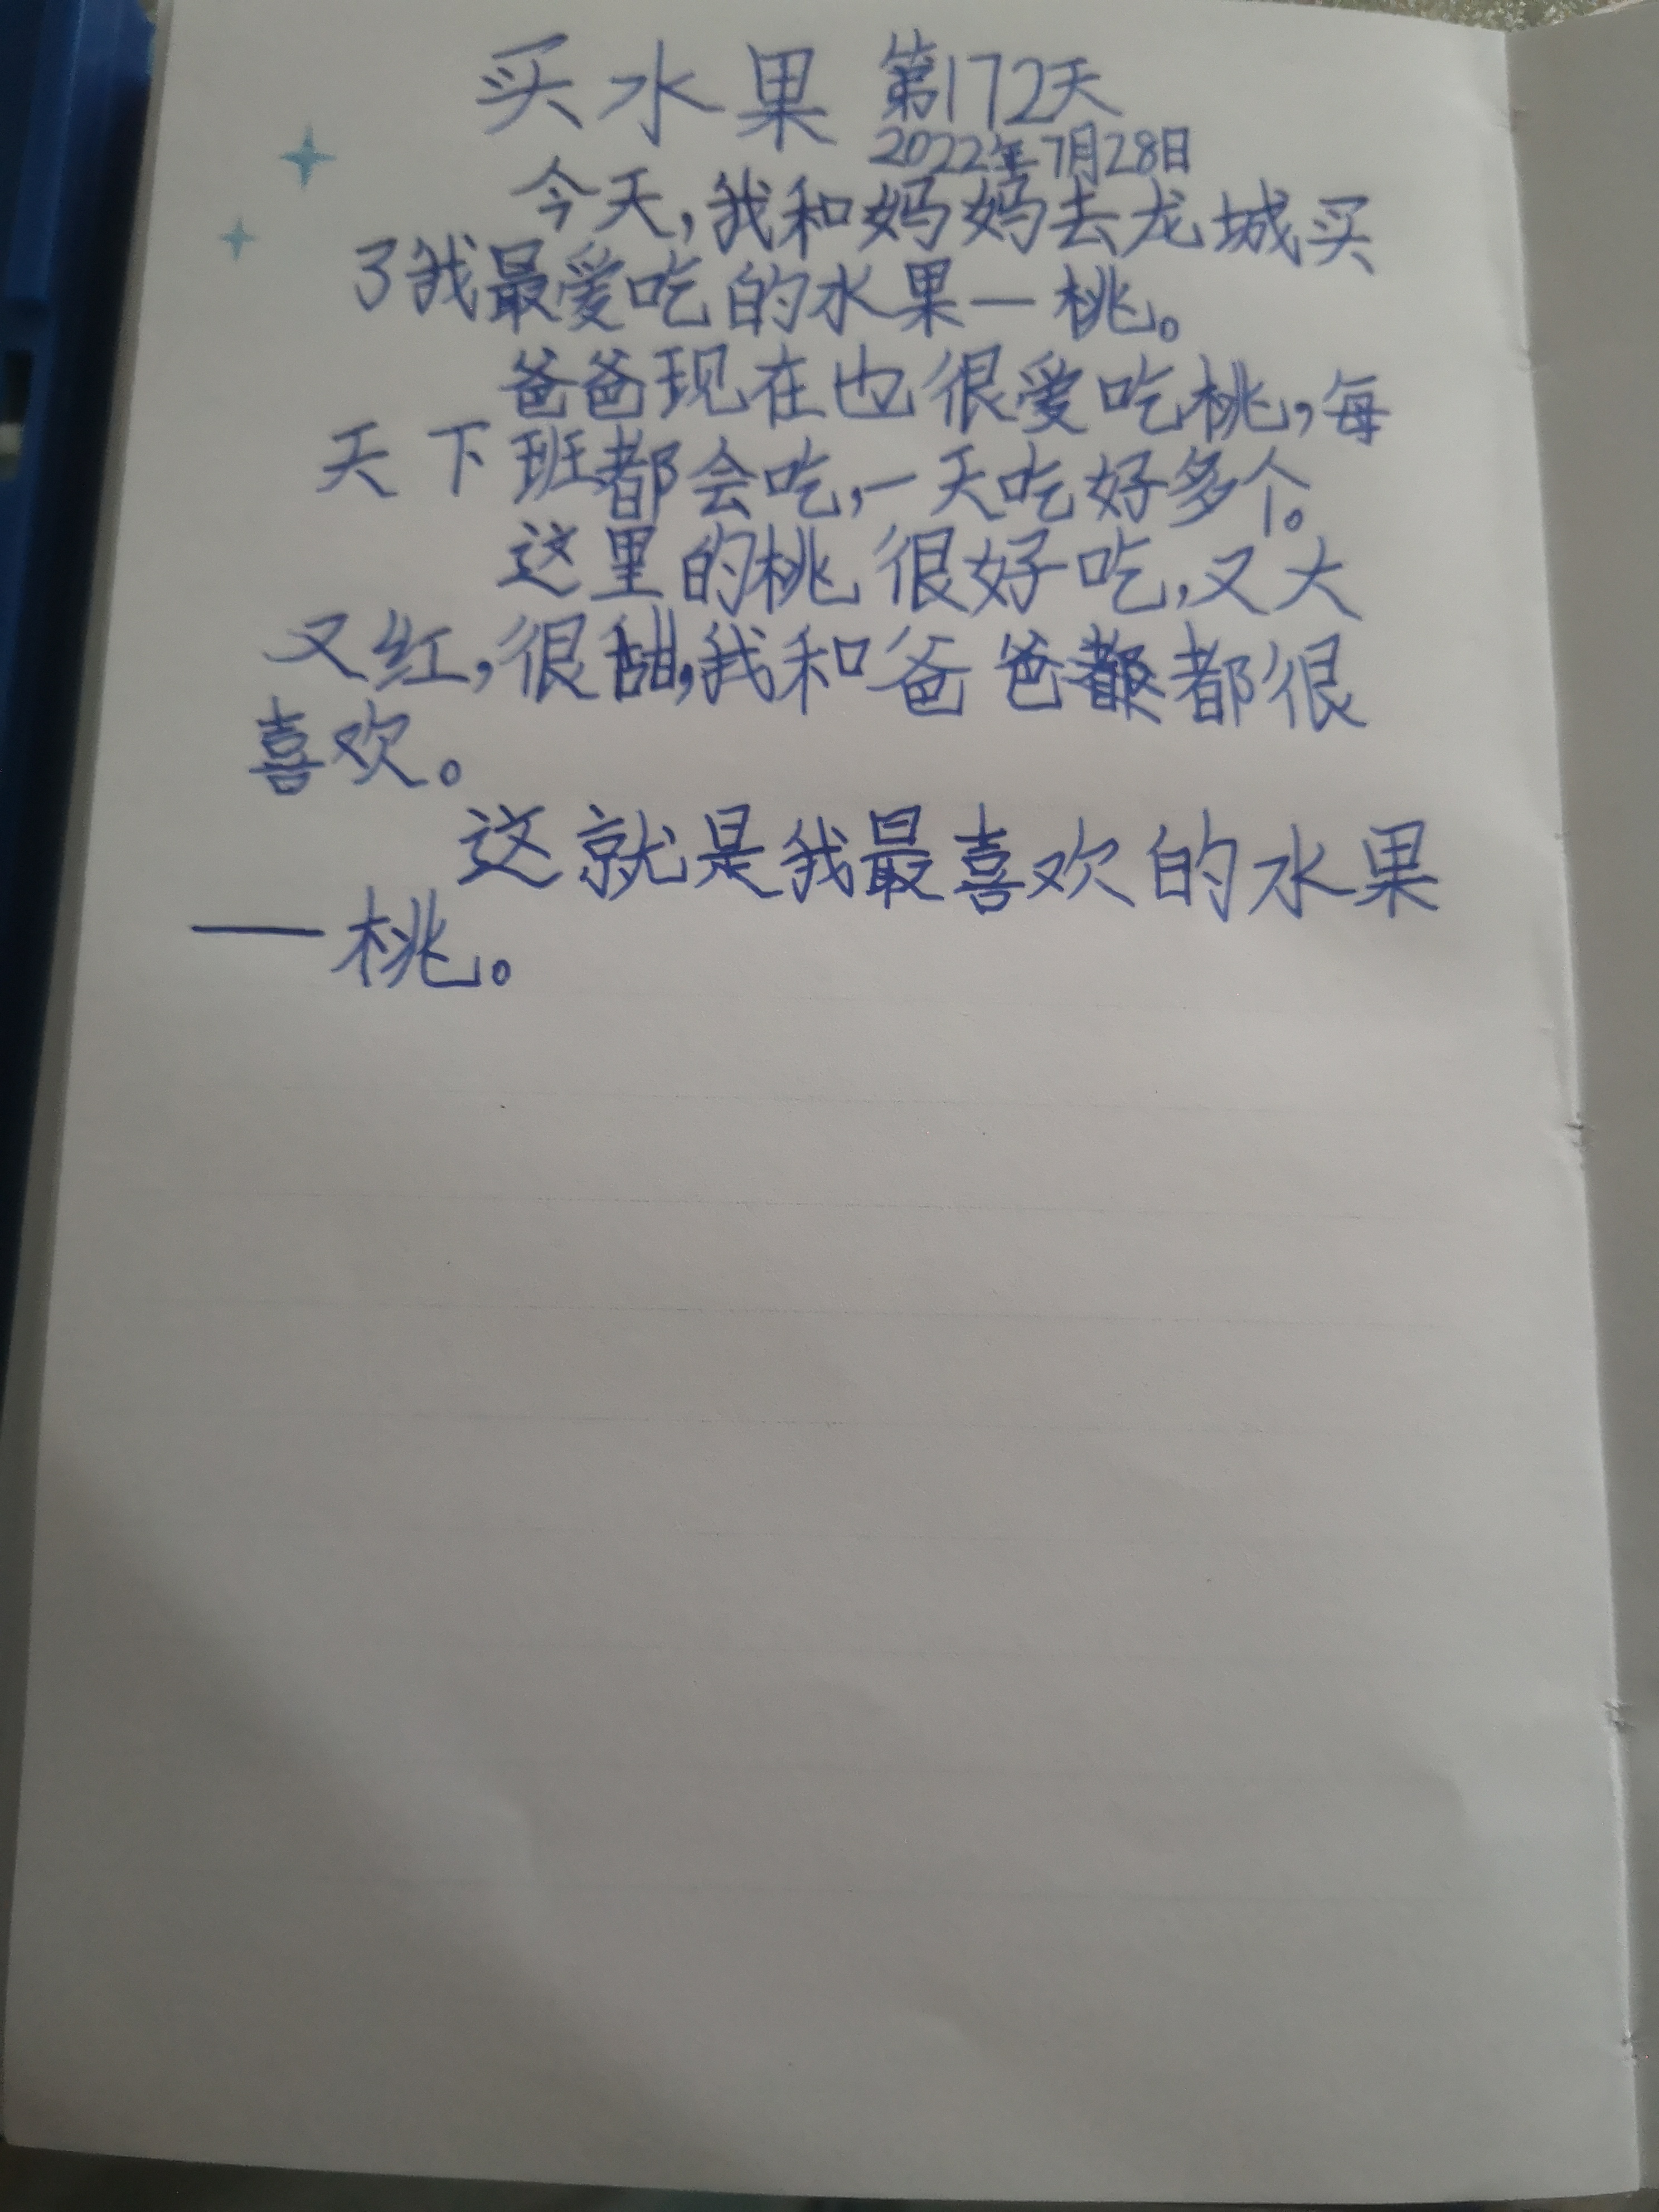 买水果 第172天
2022年7月28日
今天,我和妈妈去龙城买
了我最爱吃的水果—桃。
爸爸现在也很爱吃桃,每
天下班都会吃,一天吃好多个。
这里的桃很好吃,又大
又红,很甜,我和爸爸都很
喜欢。
这就是我最喜欢的水果
—桃。